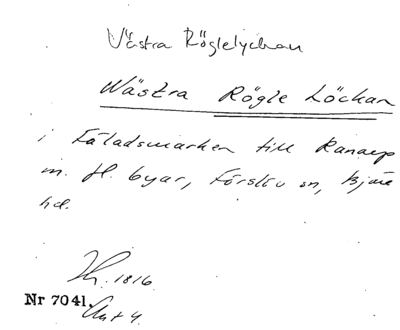 Västra Röglelyckan
Wästra Rögle Löckan
i Fäladsmarken till Ranarp
m. fl. byar, Förslöv sn, Bjäre
hd.
1816.
Nr 7041. Akt 4.